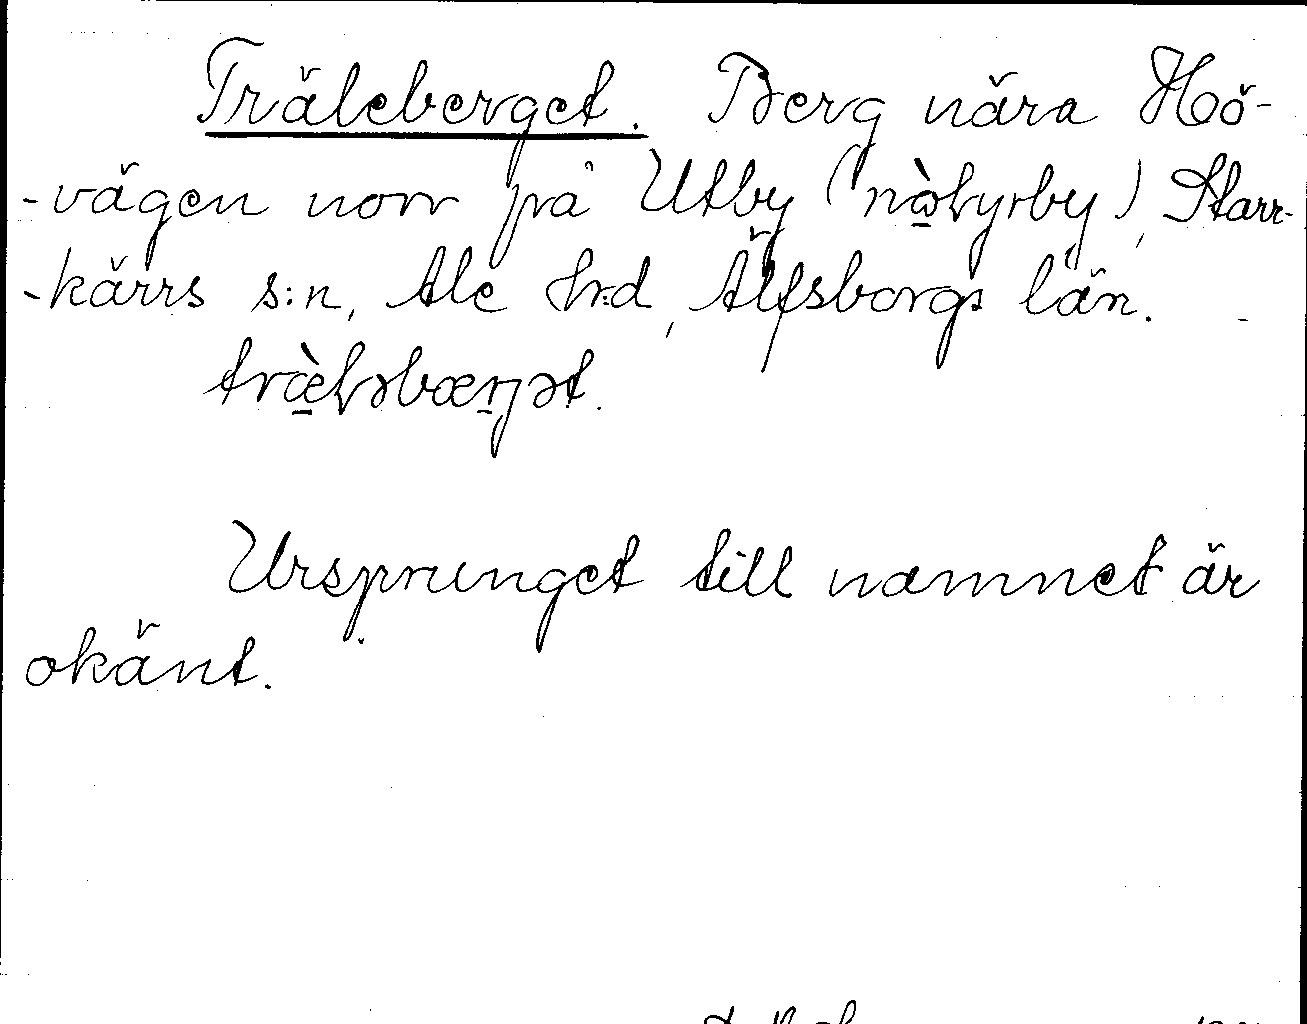 Träleberget. Berg nära Hö-
-vägen norr på Utby ( ), Starr-
-kärrs s:n, Ale hr:d, Älfsborgs län.
Ursprunget till namnet är
okänt.